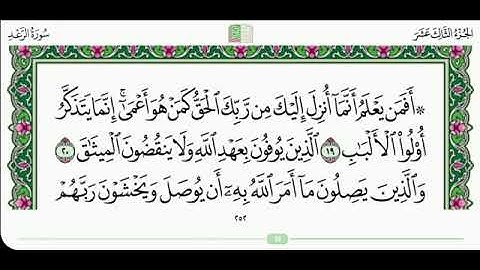 سُورَةُ الرَّعْدِ
الجُزْءُ الثَّالِثَ عَشَرَ
۞ أَفَمَن يَعْلَمُ أَنَّمَآ أُنزِلَ إِلَيْكَ مِن رَّبِّكَ ٱلْحَقُّ كَمَنْ هُوَ أَعْمَىٰٓۚ إِنَّمَا يَتَذَكَّرُ
أُو۟لُوا۟ ٱلْأَلْبَٰبِ ١٩ ٱلَّذِينَ يُوفُونَ بِعَهْدِ ٱللَّهِ وَلَا يَنقُضُونَ ٱلْمِيثَٰقَ ٢٠
وَٱلَّذِينَ يَصِلُونَ مَآ أَمَرَ ٱللَّهُ بِهِۦٓ أَن يُوصَلَ وَيَخْشَوْنَ رَبَّهُمْ
٢٥٢